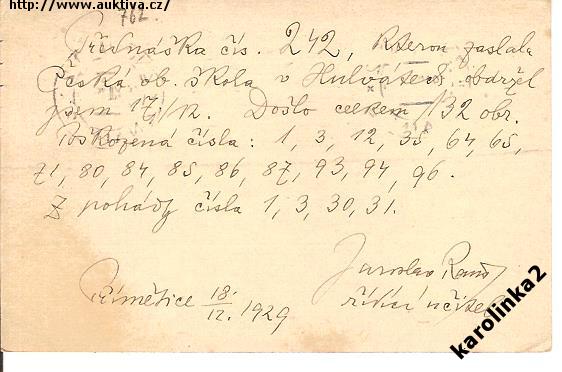 http://www.auktiva.cz
762
Přednáška čís. 242, kterou zaslala
Česká ob. škola v Hulvákách obdržel
jsem 17/12. Došlo celkem 132 obr.
Poškozená čísla: 1, 3, 12, 35, 64, 65,
71, 80, 84, 85, 86, 87, 93, 94, 96.
Z pohádky čísla 1, 3, 30, 31.
Jaroslav
řídící učitel
Přímětice 18/12. 1929
karolinka2